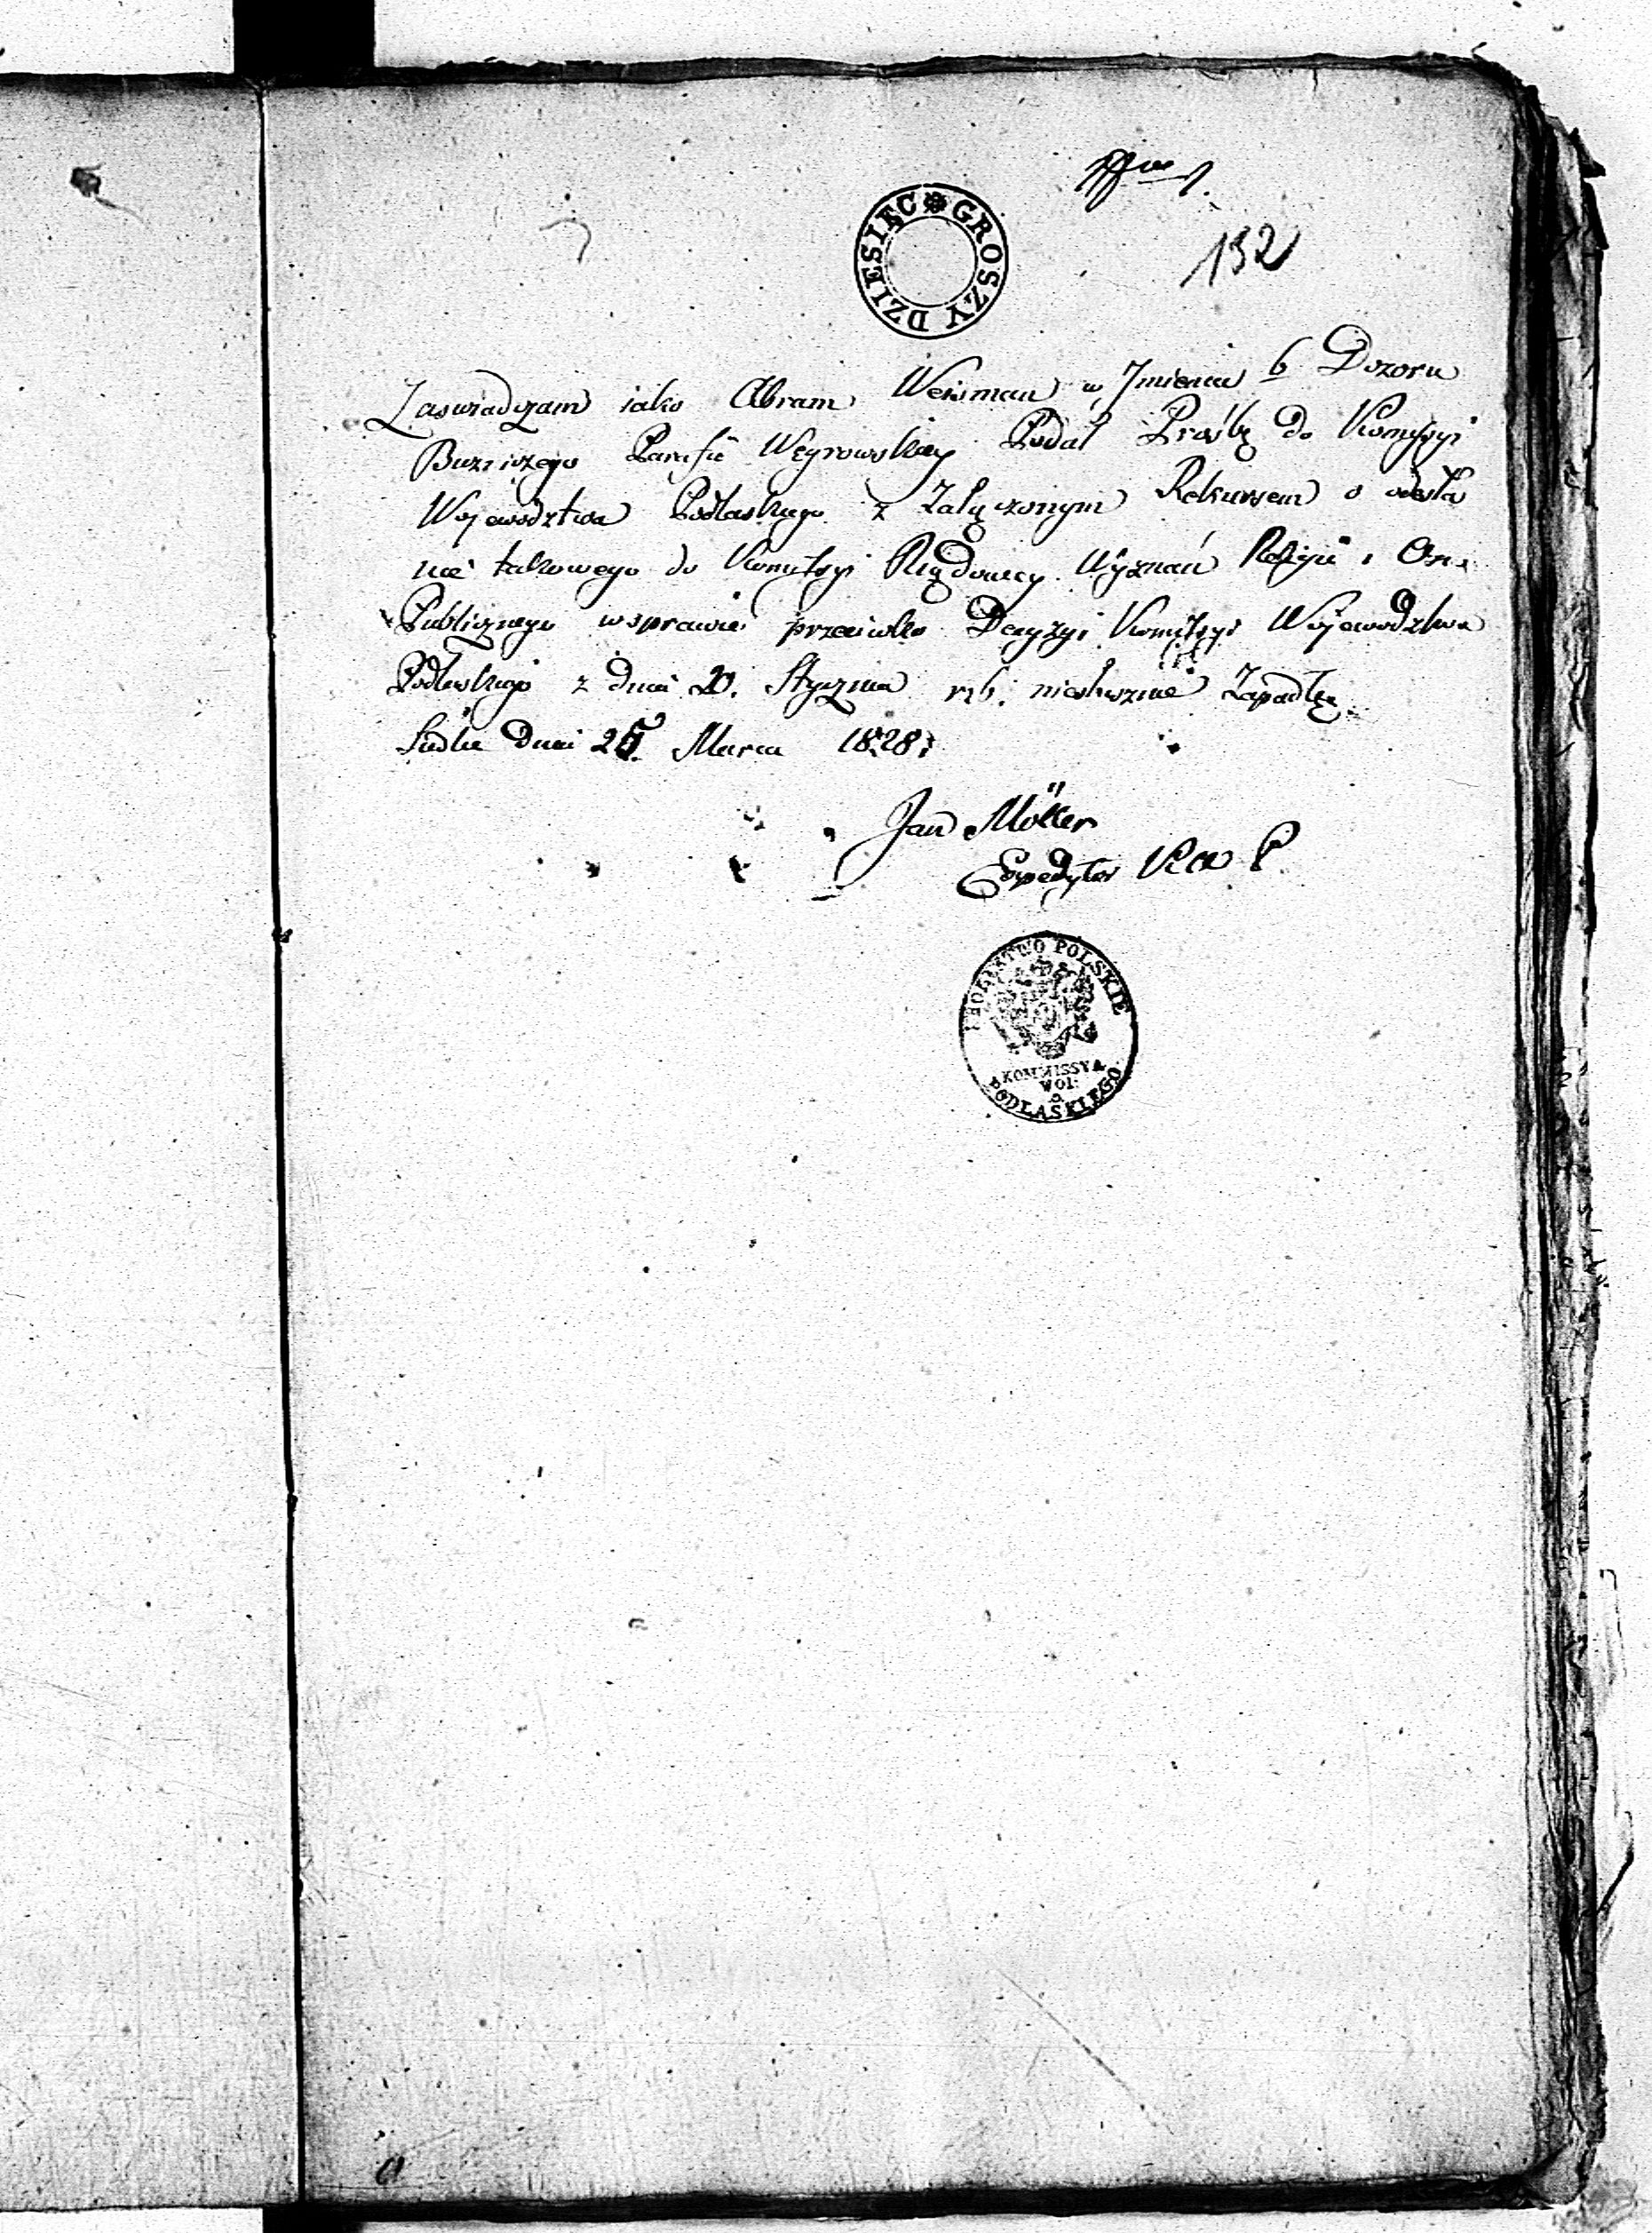 132
DZIESIĘĆ GROSZY
Zaswiadczam iako Abram Weisman w Jmieniu b Dozoru
Bużniczego Parafii Węgrowskiey Podał Prośbę do Komissyi
Wojewodztwa Podlaskiego z Załączonym Rekursem o odesła
nie takowego do Komissyi Rządowey Wyznań Religii i Ośw.
Publicznego wsprawie przeciwko Decyzyi Komissyi Wojewodztwa
Podlaskiego z dnia 20. Stycznia rb. niesłusznie Zapadłey.
Siedlce Dnia 25 Marca 1828
Jan Möller
Expedytor KWP
KROLESTWO POLSKIE
KOMMISSYA
WOI:
PODLASKIEGO